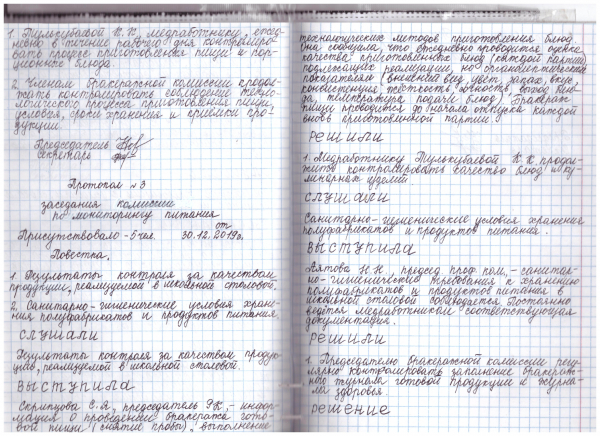 1. Тулькубаевой К.К., медработнику, ежед-
невно в течение рабочего дня контролиро-
вать процесс приготовления пищи и пор-
ционных блюда.
2. Членам бракеражной комиссии продол-
жать контролировать соблюдение техно-
логического процесса приготовления пищи,
условия, сроки хранения и приёмки про-
дукции.
Председатель
секретарь
Протокол №3
заседания комиссии
по мониторингу питания
от
Присутствовало - 5 чел. 30.12.2019г.
Повестка.
1. Результаты контроля за качеством
продукции, реализуемой в школьной столовой.
2. Санитарно-гигиенические условия хране-
ния полуфабрикатов и продуктов питания.
СЛУШАЛИ
Результаты контроля за качеством продук-
ции, реализуемой в школьной столовой.
ВЫСТУПИЛА
Скрипцова С.Я, председатель РК, - инфор-
мация о проведении бракеража гото-
вой пищи (снятие пробы), выполнение
технологических методов приготовления блюд.
Она сообщила, что ежедневно проводится оценка
качества приготовленных блюд (каждой партии)
подлежащих реализации по органолептическим
показателям (внешний вид, цвет, запах, вкус,
консистенция, жёсткость, сочность, выход блю-
да, температура подачи блюд). Бракераж
пищи проводится до начала отпуска каждой
вновь приготовленной партии.
РЕШИЛИ
1. Медработнику Тулькубаевой К.К. продол-
жить контролировать качество блюд и ку-
линарных изделий.
СЛУШАЛИ
Санитарно-гигиенические условия хранения
полуфабрикатов и продуктов питания.
ВЫСТУПИЛА
Н.Н., председ. проф.ком, - санитар-
но-гигиенические требования к хранению
полуфабрикатов и продуктов питания в
школьной столовой соблюдается. Постоянно
ведётся медработником соответствующая
документация.
РЕШИЛИ
1. Председателю бракеражной комиссии регу-
лярно контролировать заполнение бракераж-
ного журнала готовой продукции и журна-
ла здоровья.
РЕШЕНИЕ